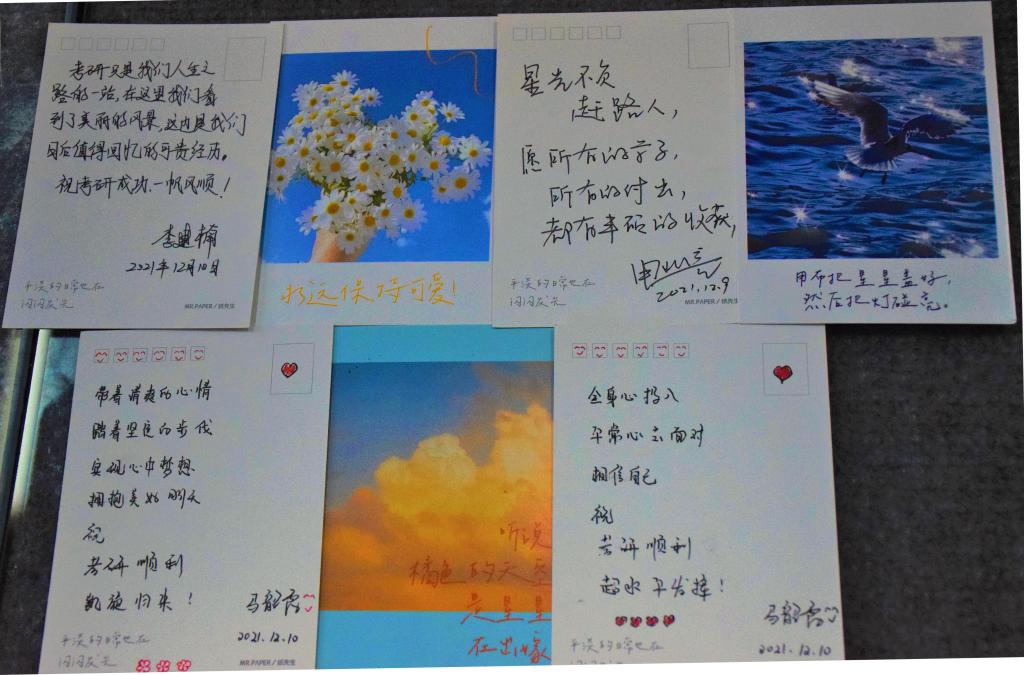 考研只是我们人生之
路的一站,在这里我们看
到了美丽的风景,这也是我们
日后值得回忆的可贵经历。
祝考研成功,一帆风顺!
2021年12月10日
平淡的日常也在
闪闪发光
MR.PAPER / 纸先生
永远保持可爱!
星光不负
赶路人,
愿所有的学子,
所有的付出,
都有丰硕的收获,
2021.12.9
平淡的日常也在
闪闪发光
MR.PAPER / 纸先生
用布把星星盖好,
然后把灯碰亮。
带着清爽的心情
踏着坚定的步伐
实现心中梦想
拥抱美好明天
祝
考研顺利
凯旋归来!
2021.12.10
平淡的日常也在
闪闪发光
MR.PAPER / 纸先生
听说
橘色的天空
是星星
在出嫁
全身心投入
平常心去面对
相信自己
祝
考研顺利
超水平发挥!
2021.12.10
平淡的日常也在